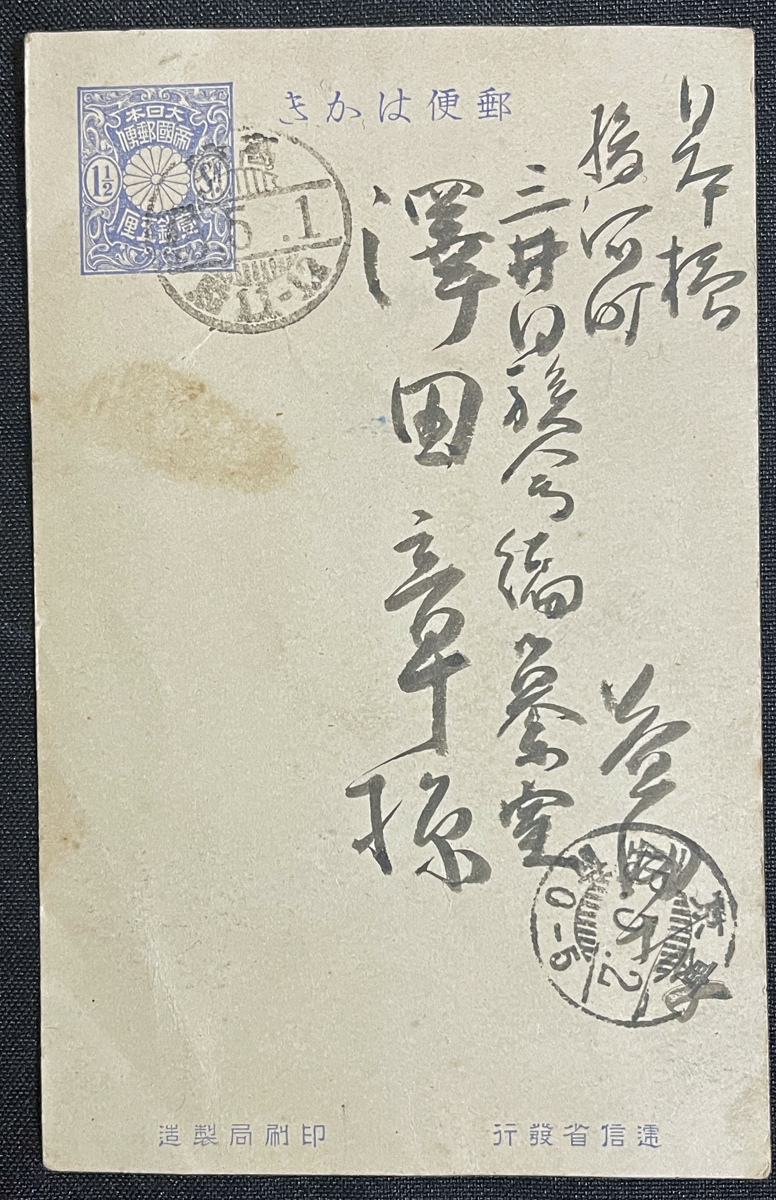 郵便はかき
大日本
帝國郵便
1½
壹錢五厘
日本橋
駿河町
三井同族会編纂室
澤田章様
5.1
11-
.2
0-5
遞信省發行
印刷局製造